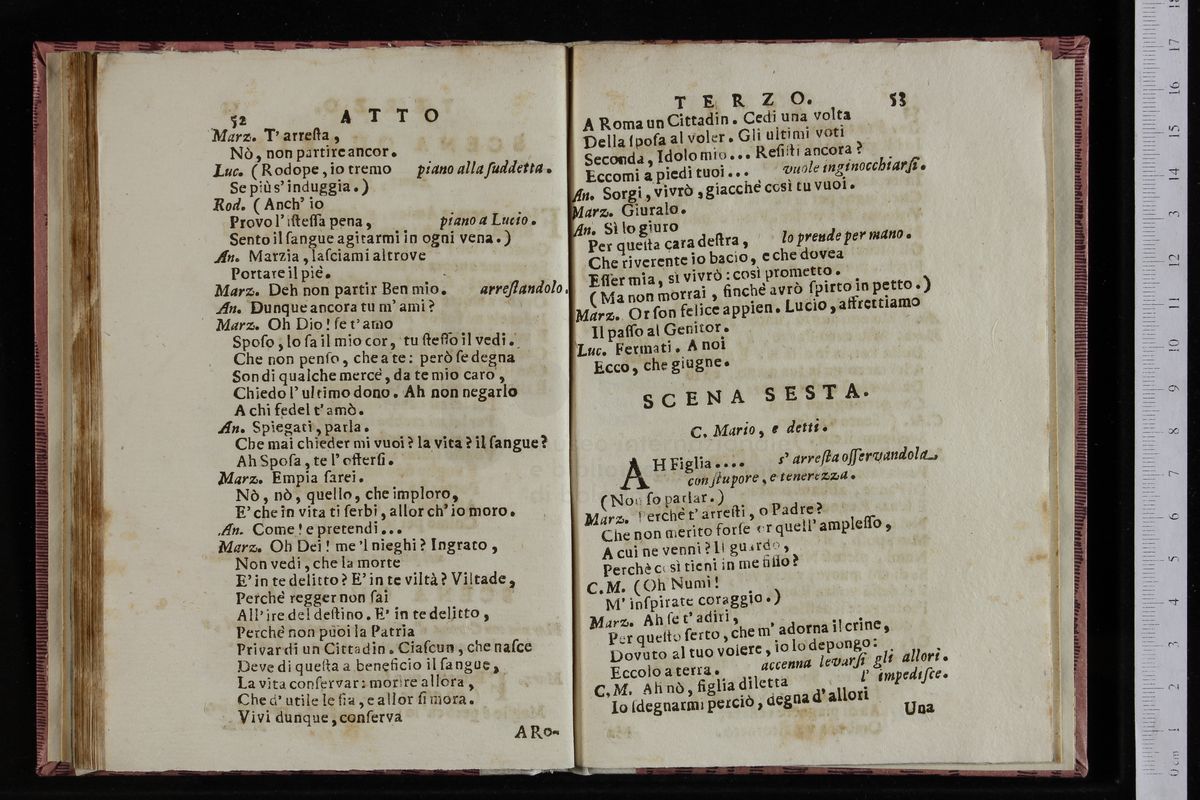 52 ATTO
Marz. T' arreſta,
Nò, non partire ancor.
Luc. (Rodope, io tremo piano alla ſuddetta.
Se più s' induggia.)
Rod. (Anch' io
Provo l' iſteſſa pena, piano a Lucio.
Sento il ſangue agitarmi in ogni vena.)
An. Marzia, laſciami altrove
Portare il piè.
Marz. Deh non partir Ben mio. arreſtandolo.
An. Dunque ancora tu m' ami?
Marz. Oh Dio! ſe t' amo
Spoſo, lo ſa il mio cor, tu ſteſſo il vedi.
Che non penſo, che a te: però ſe degna
Son di qualche mercè, da te mio caro,
Chiedo l' ultimo dono. Ah non negarlo
A chi fedel t' amò.
An. Spiegati, parla.
Che mai chieder mi vuoi? la vita? il ſangue?
Ah Spoſa, te l' offerſi.
Marz. Empia ſarei.
Nò, nò, quello, che imploro,
E' che in vita ti ſerbi, allor ch' io moro.
An. Come! e pretendi...
Marz. Oh Dei! me 'l nieghi? Ingrato,
Non vedi, che la morte
E' in te delitto? E' in te viltà? Viltade,
Perchè regger non ſai
All' ire del deſtino. E' in te delitto,
Perchè non puoi la Patria
Privar di un Cittadin. Ciaſcun, che naſce
Deve di queſta a beneficio il ſangue,
La vita conſervar: morire allora,
Che d' utile le ſia, e allor ſi mora.
Vivi dunque, conſerva
A Ro-
TERZO. 53
A Roma un Cittadin. Cedi una volta
Della ſpoſa al voler. Gli ultimi voti
Seconda, Idolo mio... Reſiſti ancora?
Eccomi a piedi tuoi... vuole inginocchiarſi.
An. Sorgi, vivrò, giacchè così tu vuoi.
Marz. Giuralo.
An. Sì lo giuro
Per queſta cara deſtra, lo prende per mano.
Che riverente io bacio, e che dovea
Eſſer mia, sì vivrò: così prometto.
(Ma non morrai, finchè avrò ſpirto in petto.)
Marz. Or ſon felice appien. Lucio, affrettiamo
Il paſſo al Genitor.
Luc. Fermati. A noi
Ecco, che giugne.
SCENA SESTA.
C. Mario, e detti.
AH Figlia.... s' arreſta oſſervandola
con ſtupore, e tenerezza.
(Non ſo parlar.)
Marz. Perchè t' arreſti, o Padre?
Che non merito forſe or quell' ampleſſo,
A cui ne venni? Il guardo,
Perchè così tieni in me fiſſo?
C.M. (Oh Numi!
M' inſpirate coraggio.)
Marz. Ah ſe t' adiri,
Per queſto ſerto, che m' adorna il crine,
Dovuto al tuo volere, io lo depongo:
Eccolo a terra. accenna levarſi gli allori.
C.M. Ah nò, figlia diletta l' impediſce.
Io ſdegnarmi perciò, degna d' allori
Una